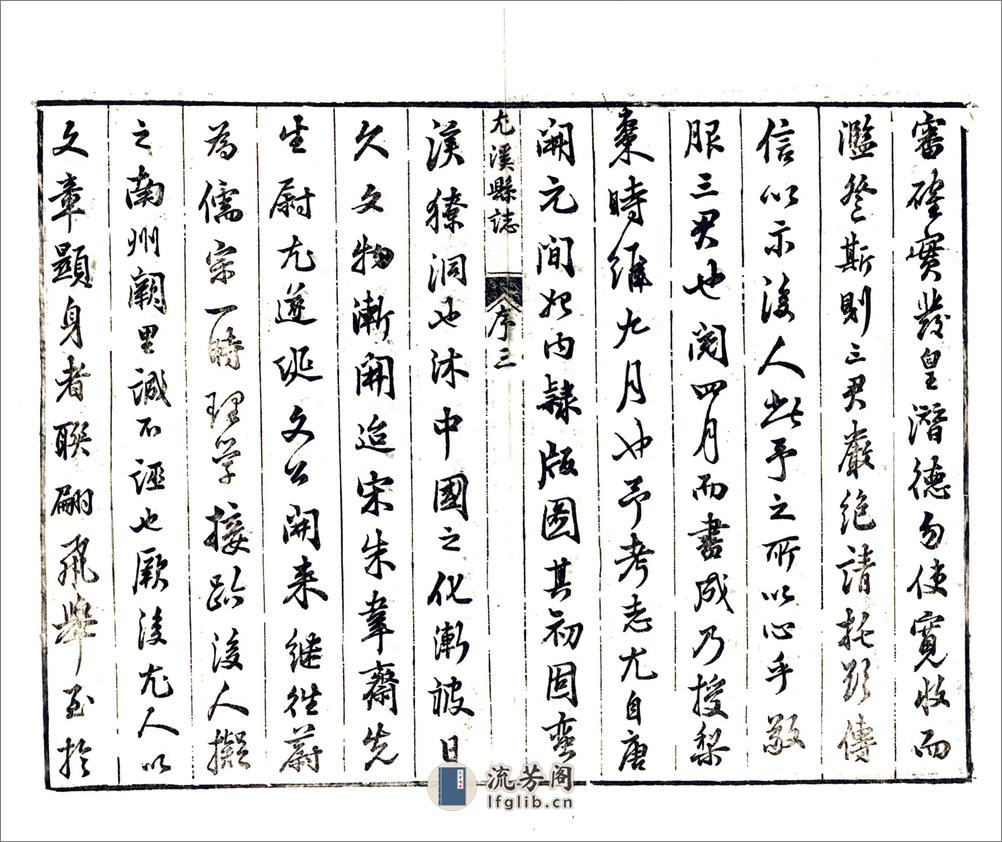 審確實發皇潛德勿使寬收而
濫登斯則三君嚴絕請托欵傳
信以示後人此予之所以心乎敬
服三君也閱四月而書成乃授梨
棗時維九月也予考志尤自唐
開元間始內隸版圖其初固蛮
尤溪縣誌
序三
溪獠洞也沐中國之化漸被日
久文物漸開迨宋朱韋齋先
生尉尤遂延文公開来繼往蔚
為儒宗一時理学接趾後人擬
之南州闕里誠不誣也厥後尤人以
文章顯身者聯翩飛舉至於
流芳阁
lfglib.cn